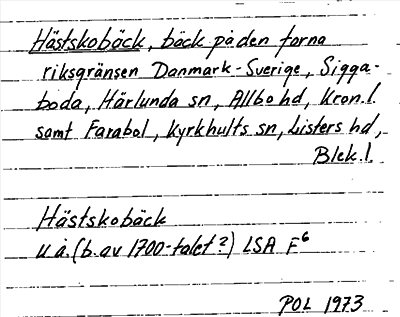 Hästskobäck, bäck på den forna
riksgränsen Danmark-Sverige, Sigga-
boda, Härlunda sn, Allbo hd, Kron.l.
samt Farabol, Kyrkhults sn, Listers hd,
Blek.l.
Hästskobäck
u.å. (b. av 1700-talet?) LSA F6
POL 1973